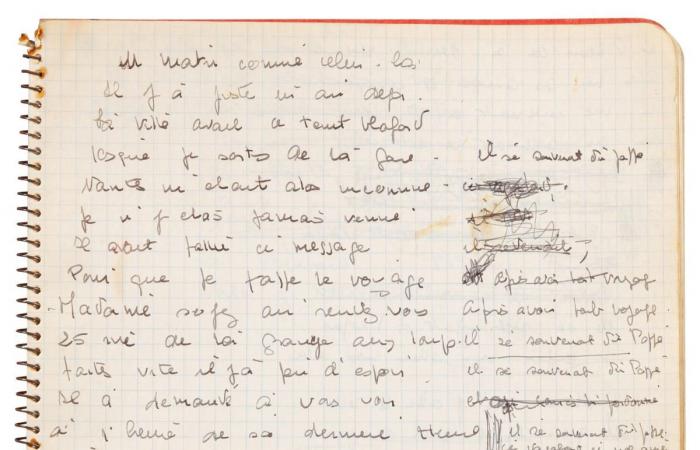 Un matin comme celui-là
Il y a juste un an déjà.
La ville avait ce teint blafard
lorsque je sortis de la gare -
Nantes m'était alors inconnue -
je n'y étais jamais venue
Il avait fallu ce message
Pour que je fasse le voyage
- Madame soyez au rendez vous
25 rue de la grange aux loups.
faites vite il y a peu d'espoir
Il a demandé à vous voir
a l'heure de sa dernière heure
il se souvenait du passé
il
il revenait,
après avoir tant voyagé
après avoir tant voyagé.
il se souvenait du passé
il se souvenait du passé
il se souvenait du passé